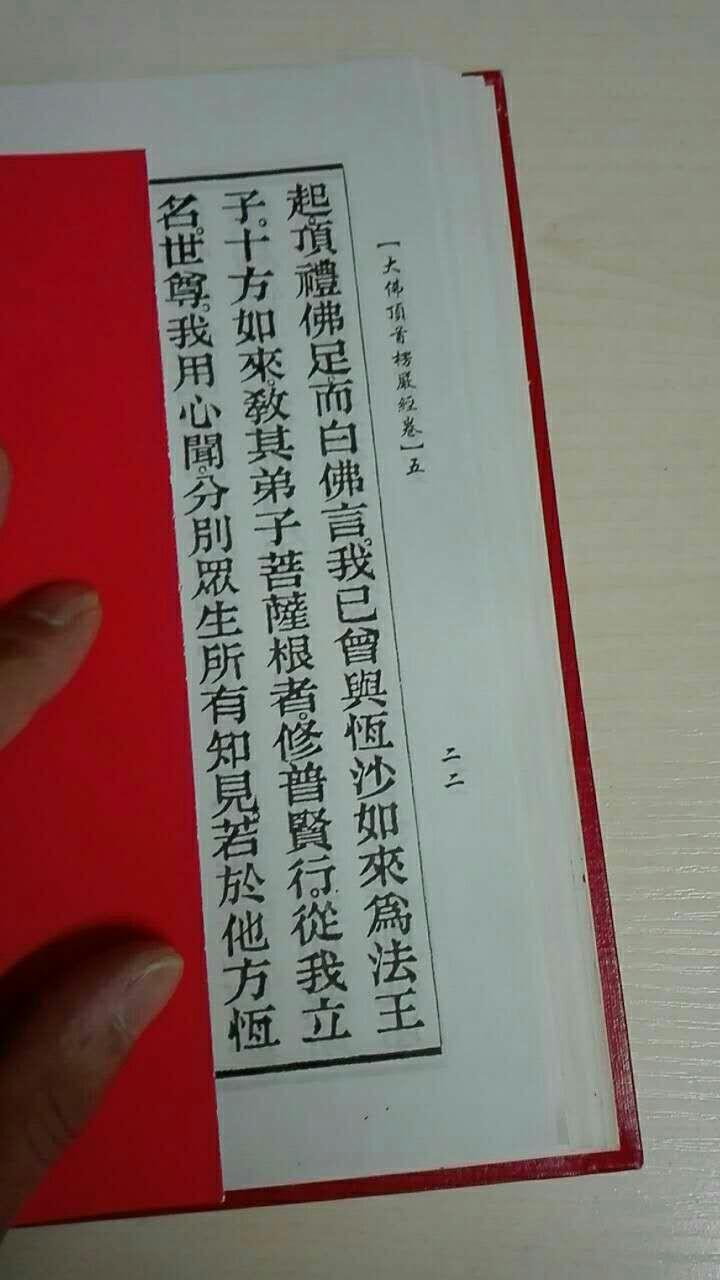 【大佛頂首楞嚴經卷】五
二二
起。頂禮佛足。而白佛言。我已曾與恆沙如來爲法王
子。十方如來。敎其弟子菩薩根者。修普賢行。從我立
名。世尊。我用心聞。分別眾生所有知見。若於他方恆